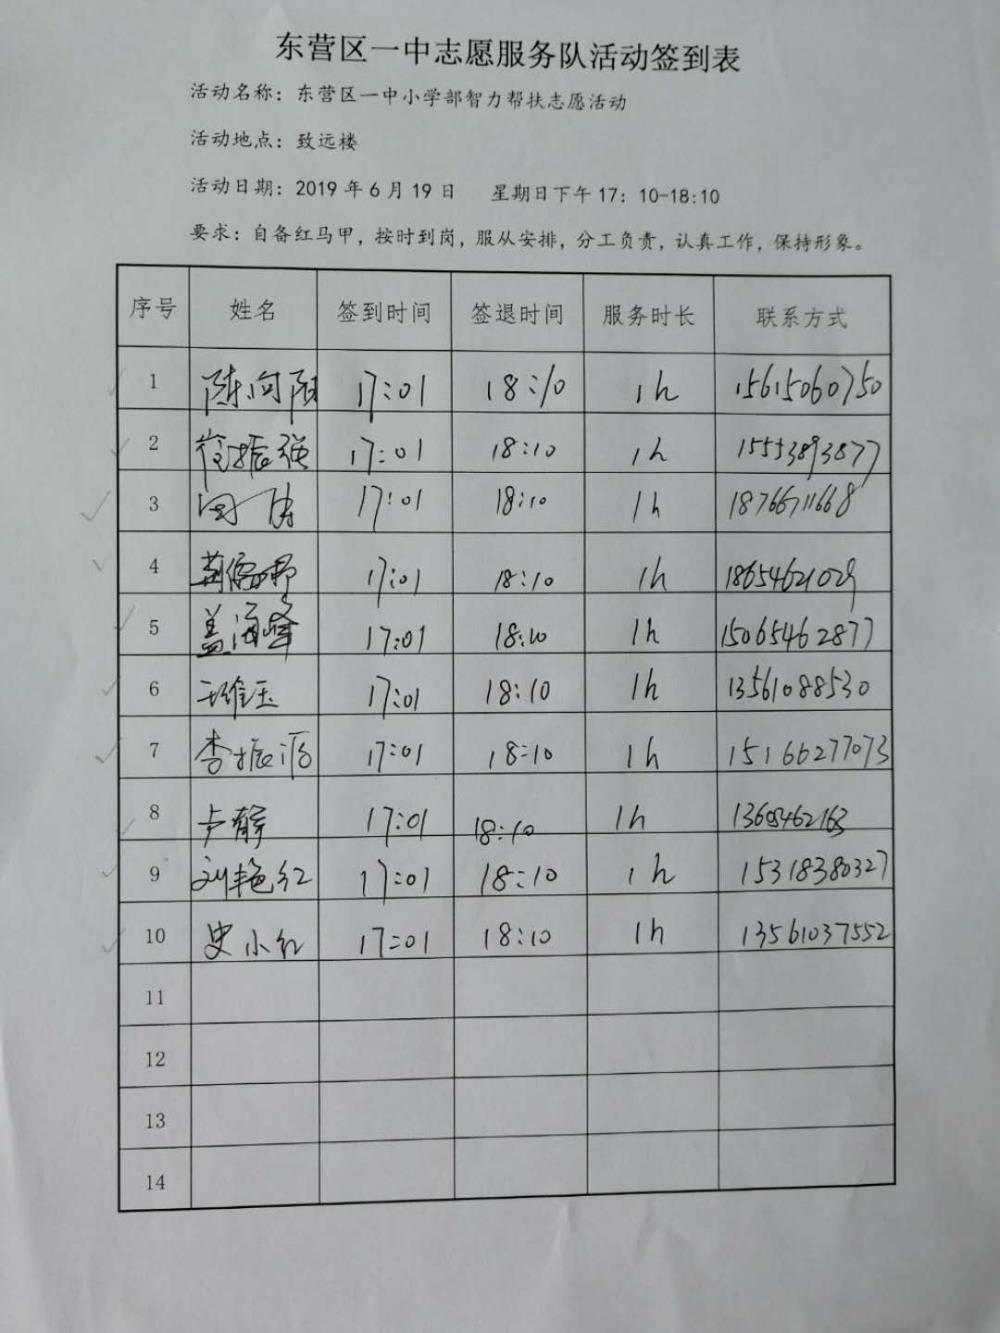 东营区一中志愿服务队活动签到表
活动名称：东营区一中小学部智力帮扶志愿活动
活动地点：致远楼
活动日期：2019年6月19日 星期日下午17：10-18:10
要求：自备红马甲，按时到岗，服从安排，分工负责，认真工作，保持形象。
序号 姓名 签到时间 签退时间 服务时长 联系方式
1 陈向阳 17:01 18:10 1h 15615060750
2 振强 17:01 18:10 1h 15553893877
3 17:01 18:10 1h 18766711668
4 17:01 18:10 1h 18654621029
5 盖海峰 17:01 18:10 1h 15065462877
6 王维玉 17:01 18:10 1h 13561088530
7 李振源 17:01 18:10 1h 15166277073
8 卢静 17:01 18:10 1h
9 刘艳红 17:01 18:10 1h 15318380327
10 史小红 17:01 18:10 1h 13561037552
11
12
13
14